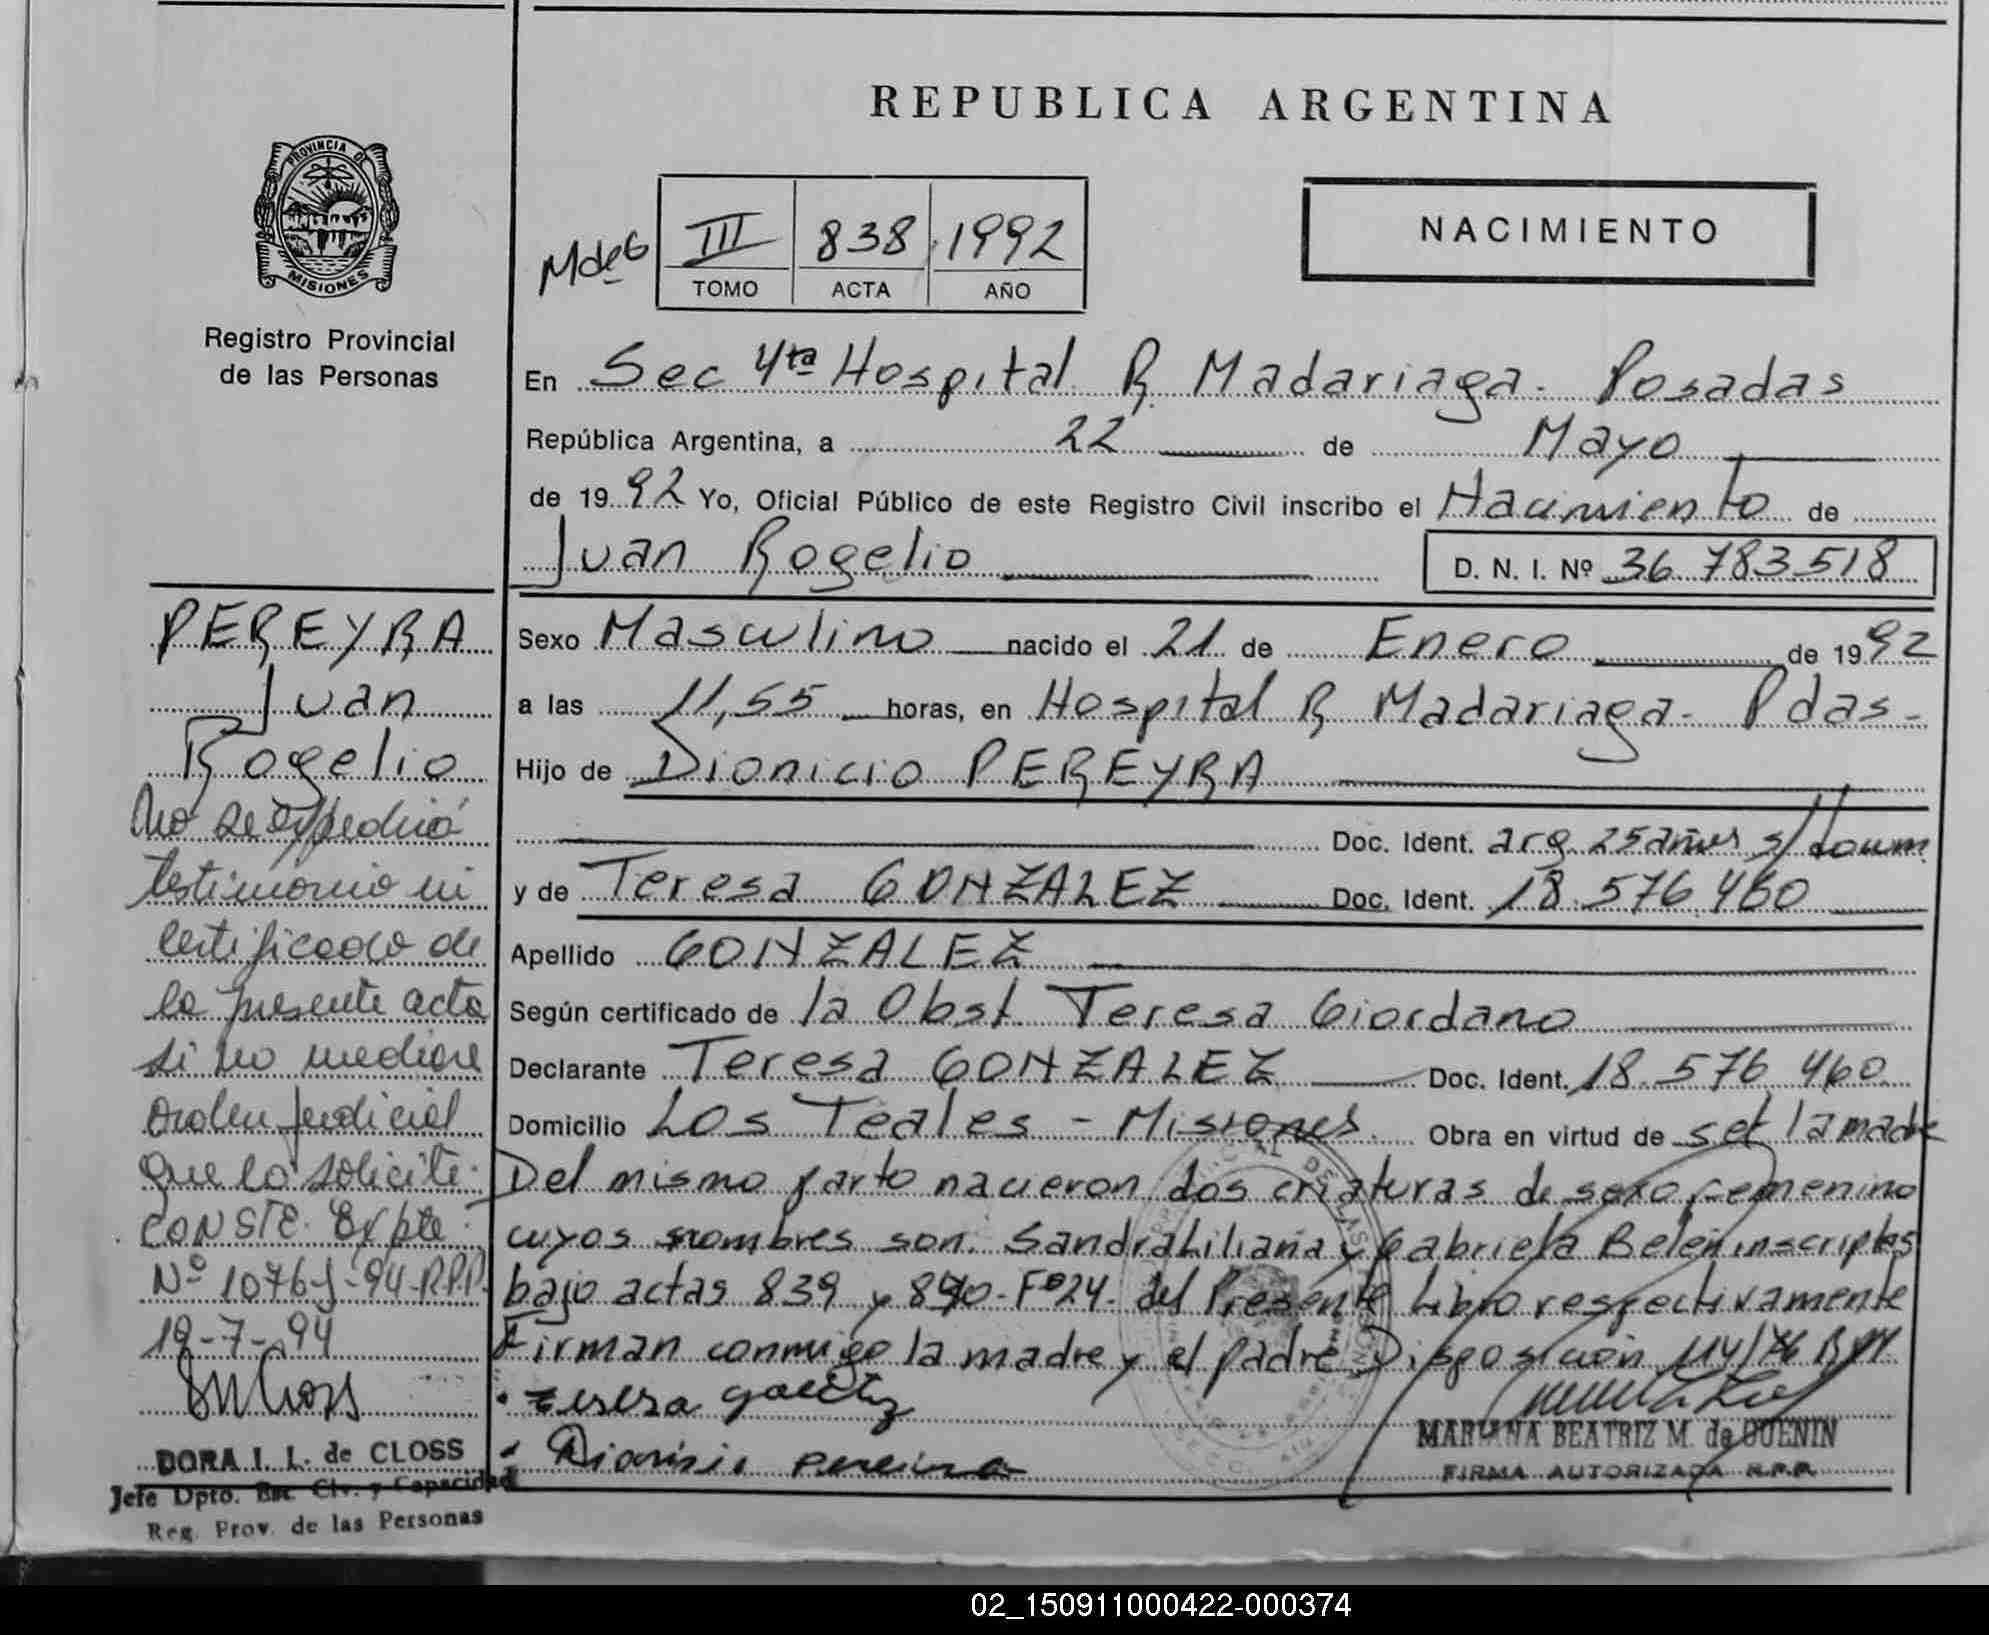 REPUBLICA ARGENTINA
PROVINCIA DE
MISIONES
Registro Provincial
de las Personas
MdeG
III 838 1992
TOMO ACTA AÑO
NACIMIENTO
En Sec 4ta Hospital R Madariaga. Posadas
República Argentina, a 22 de Mayo
de 1992 Yo, Oficial Público de este Registro Civil inscribo el Nacimiento de
Juan Rogelio D. N. I. Nº 36 783518
Sexo Masculino nacido el 21 de Enero de 1992
a las 11,55 horas, en Hospital R Madariaga- Pdas-
Hijo de Dionicio PEREYRA
Doc. Ident. arg 25 años s/docum
y de Teresa GONZALEZ Doc. Ident. 18.576.460
Apellido GONZALEZ
Según certificado de la Obst. Teresa Giordano
Declarante Teresa GONZALEZ Doc. Ident. 18.576 460
Domicilio Los Teales - Misiones. Obra en virtud de ser la madre
Del mismo parto nacieron dos criaturas de sexo femenino
cuyos nombres son: Sandra Liliana y Gabriela Belén inscriptas
bajo actas 839 y 840-Fº24- del Presente Libro respectivamente
Firman conmigo la madre y el padre Disposición 114/76
Teresa
Dionisio pereira
MARIANA BEATRIZ M. de GUENIN
FIRMA AUTORIZADA R.P.P.
PEREYRA
Juan
Rogelio
No se expedirá
testimonio ni
certificado de
la presente acta
si no mediare
orden judicial
que lo solicite.
CONSTE. Expte
Nº 1076-J-94-R.P.P.
19-7-94
DORA I. L. de CLOSS
Jefe Dpto. Est. Civ. y Capacidad
Reg. Prov. de las Personas
02_150911000422-000374